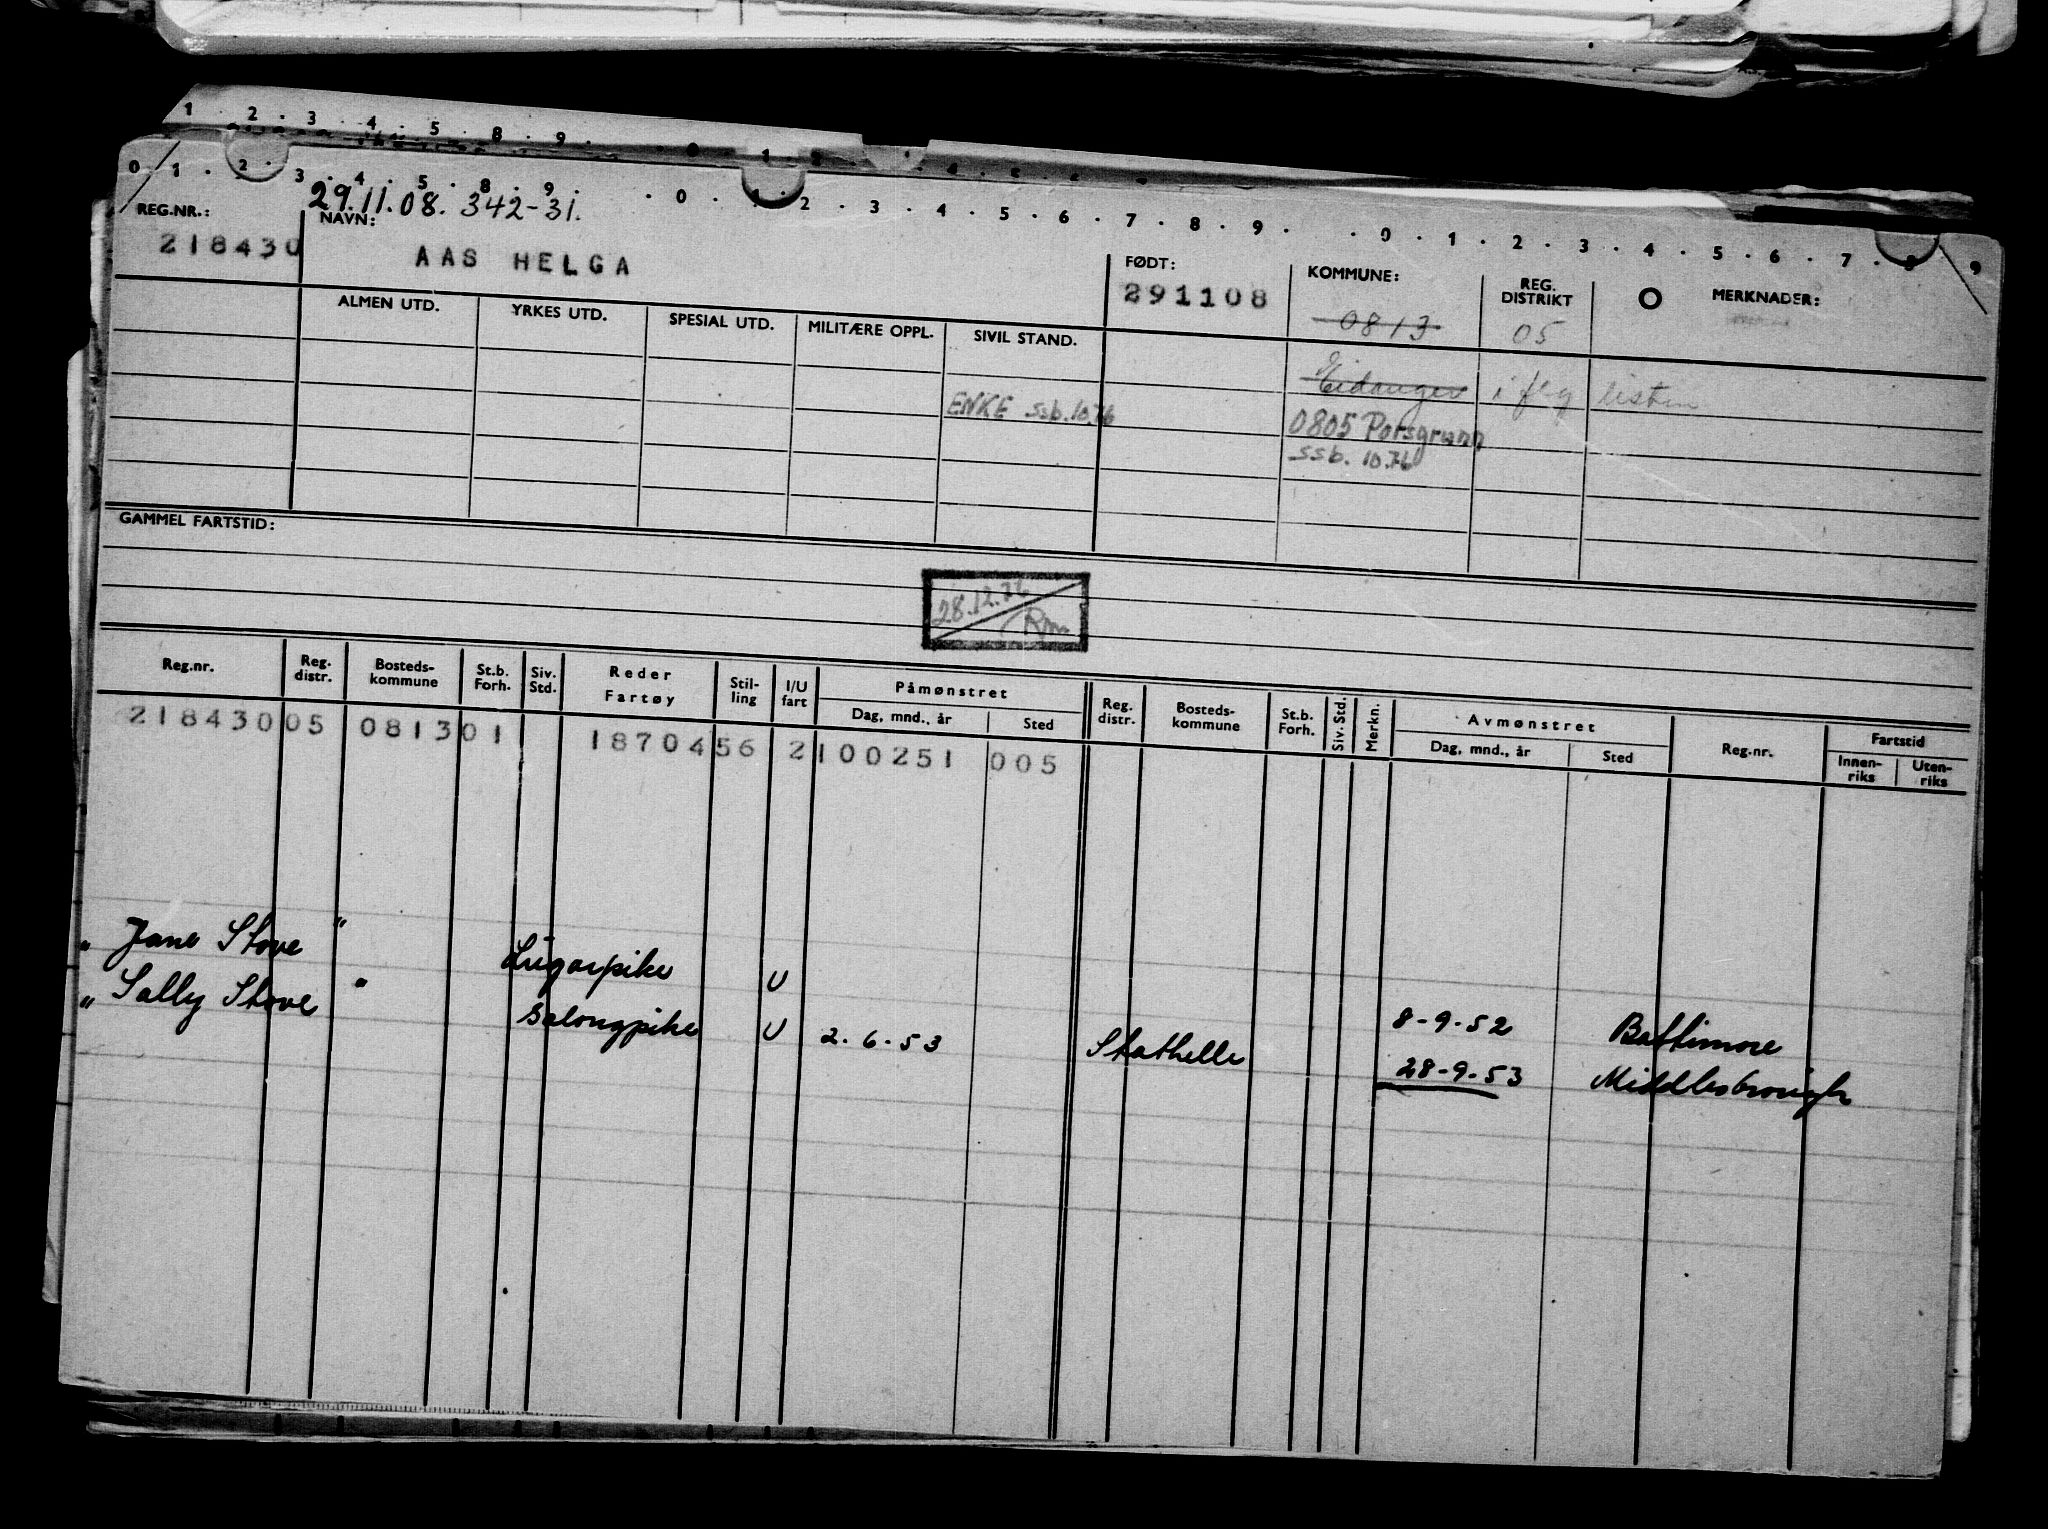 1 . 2 . 3 . 4 . 5 . 8 . 9 . . 0 . 1 . 2
0 . 1 . 2 . 3 . 4 . 5 . 8 . 9 . . 0 . 1 . 2 . 3 . 4 . 5 . 6 . 7 . 8 . 9 . . 0 . 1 . 2 . 3 . 4 . 5 . 6 . 7 . 8 . 9
29.11.08. 342-31.
REG.NR.: NAVN: FØDT: KOMMUNE: REG. DISTRIKT O MERKNADER:
218430 AAS HELGA 291108 0813 05
ALMEN UTD. YRKES UTD. SPESIAL UTD. MILITÆRE OPPL. SIVIL STAND.
Eidanger i flg listen
ENKE ssb. 10.76 0805 Porsgrunn
ssb. 10.76
GAMMEL FARTSTID:
28.12.76
Rm
Reg.nr. Reg. distr. Bosteds-kommune St.b. Forh. Siv. Std. Reder Fartøy Stil-ling I/U fart Påmønstret Dag, mnd., år Sted Reg. distr. Bosteds-kommune St.b. Forh. Siv. Std. Merkn. Avmønstret Dag, mnd., år Sted Reg.nr. Fartstid Innen-riks Uten-riks
218430 05 0813 01 18704 56 2 100251 005
" Jane Stove " Lugarpike U 8-9-52 Baltimore
" Sally Stove " Salongpike U 2.6.53 Stathelle 28-9-53 Middlesbrough